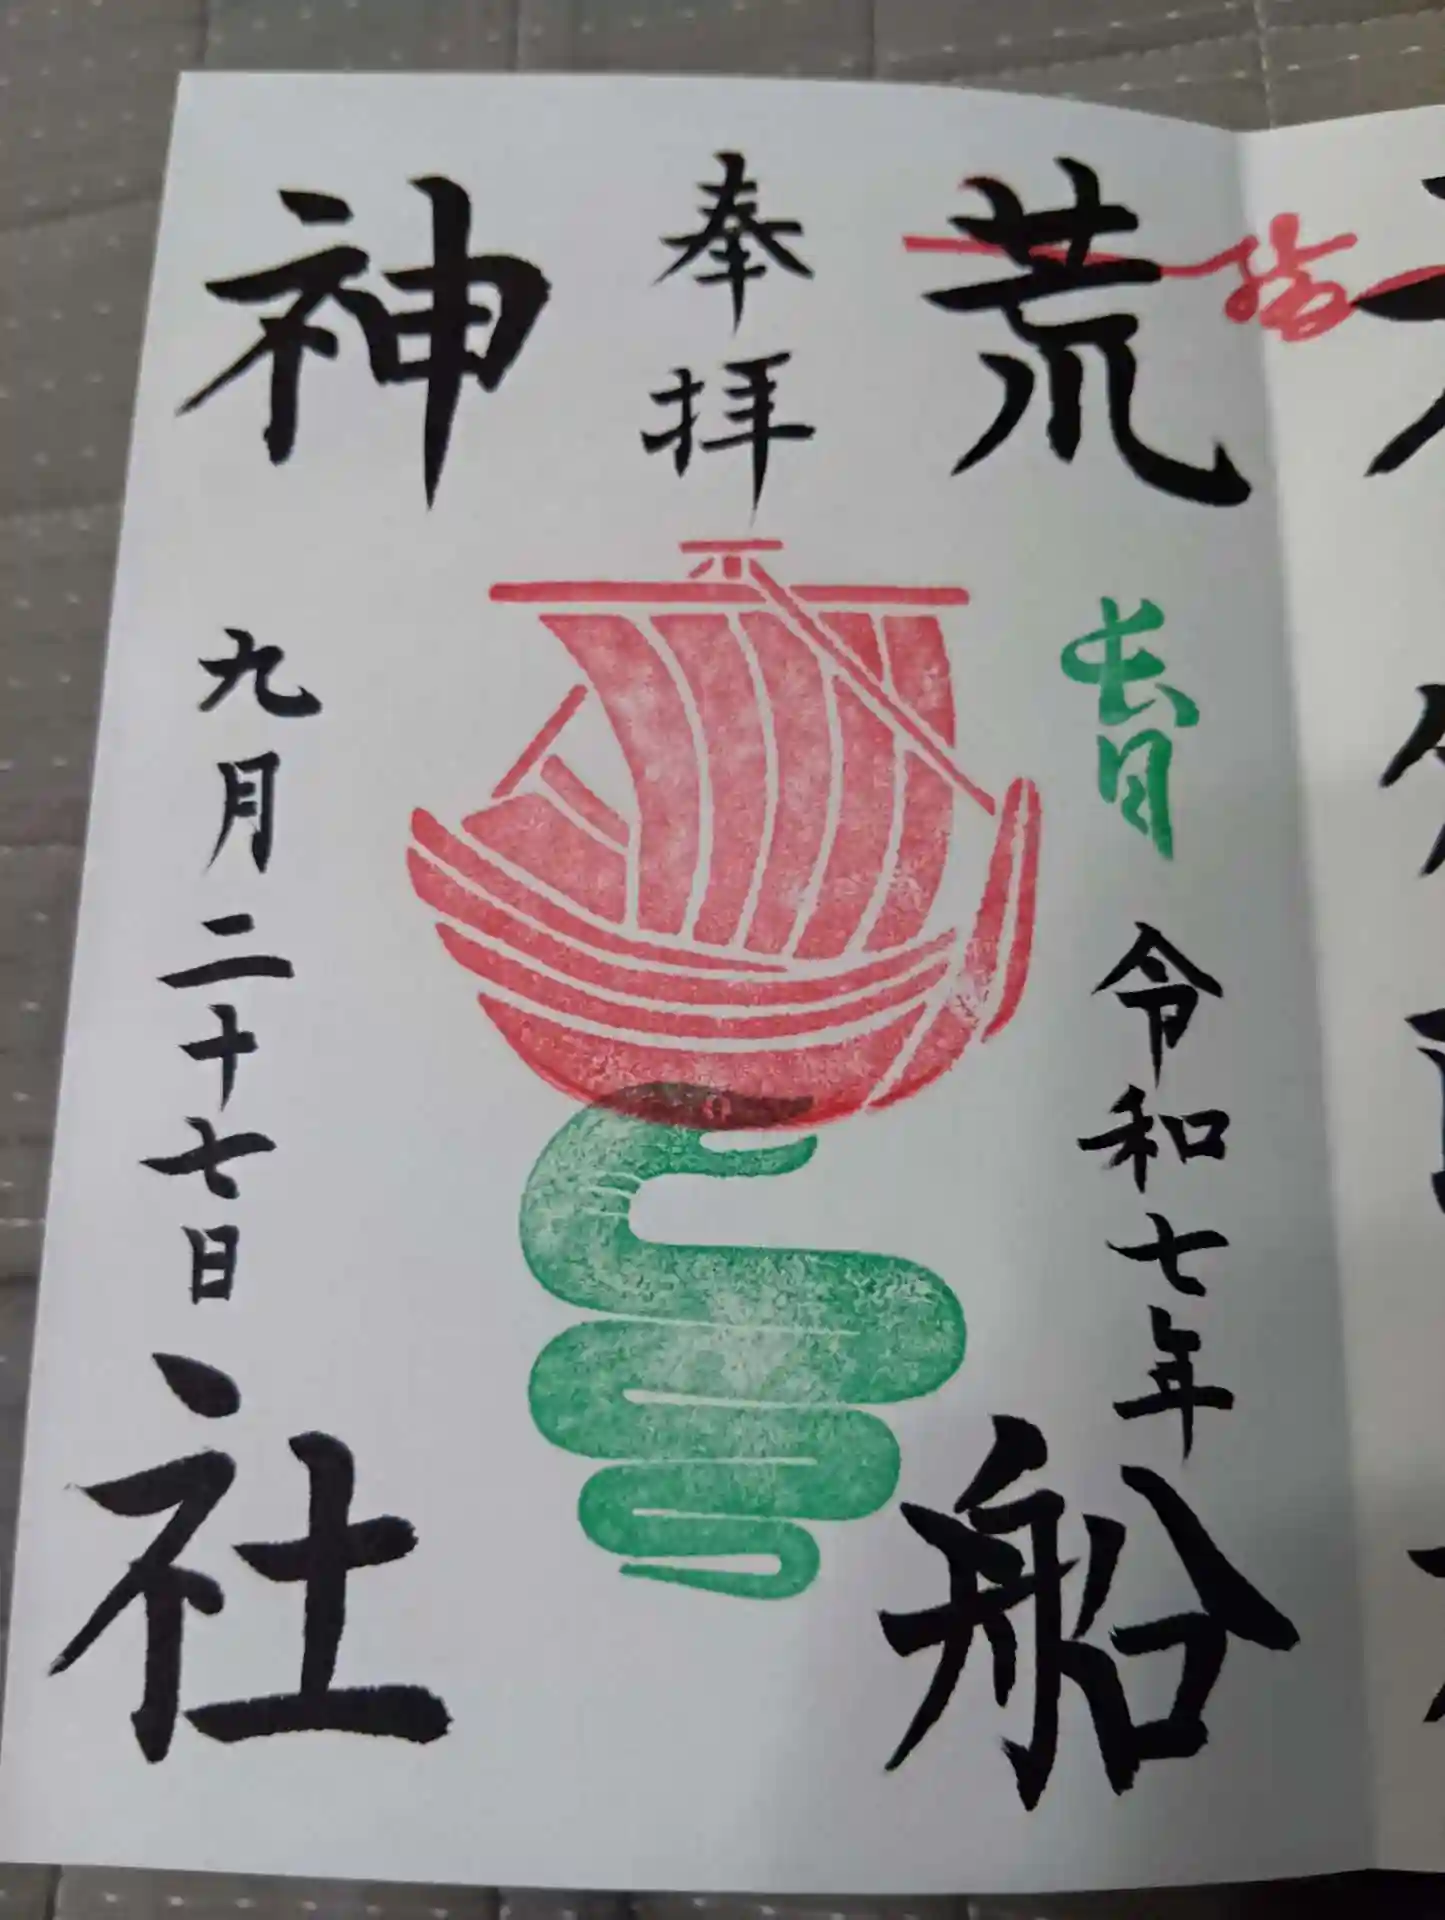 荒船
青
令和七年
奉拝
神社
九月二十七日